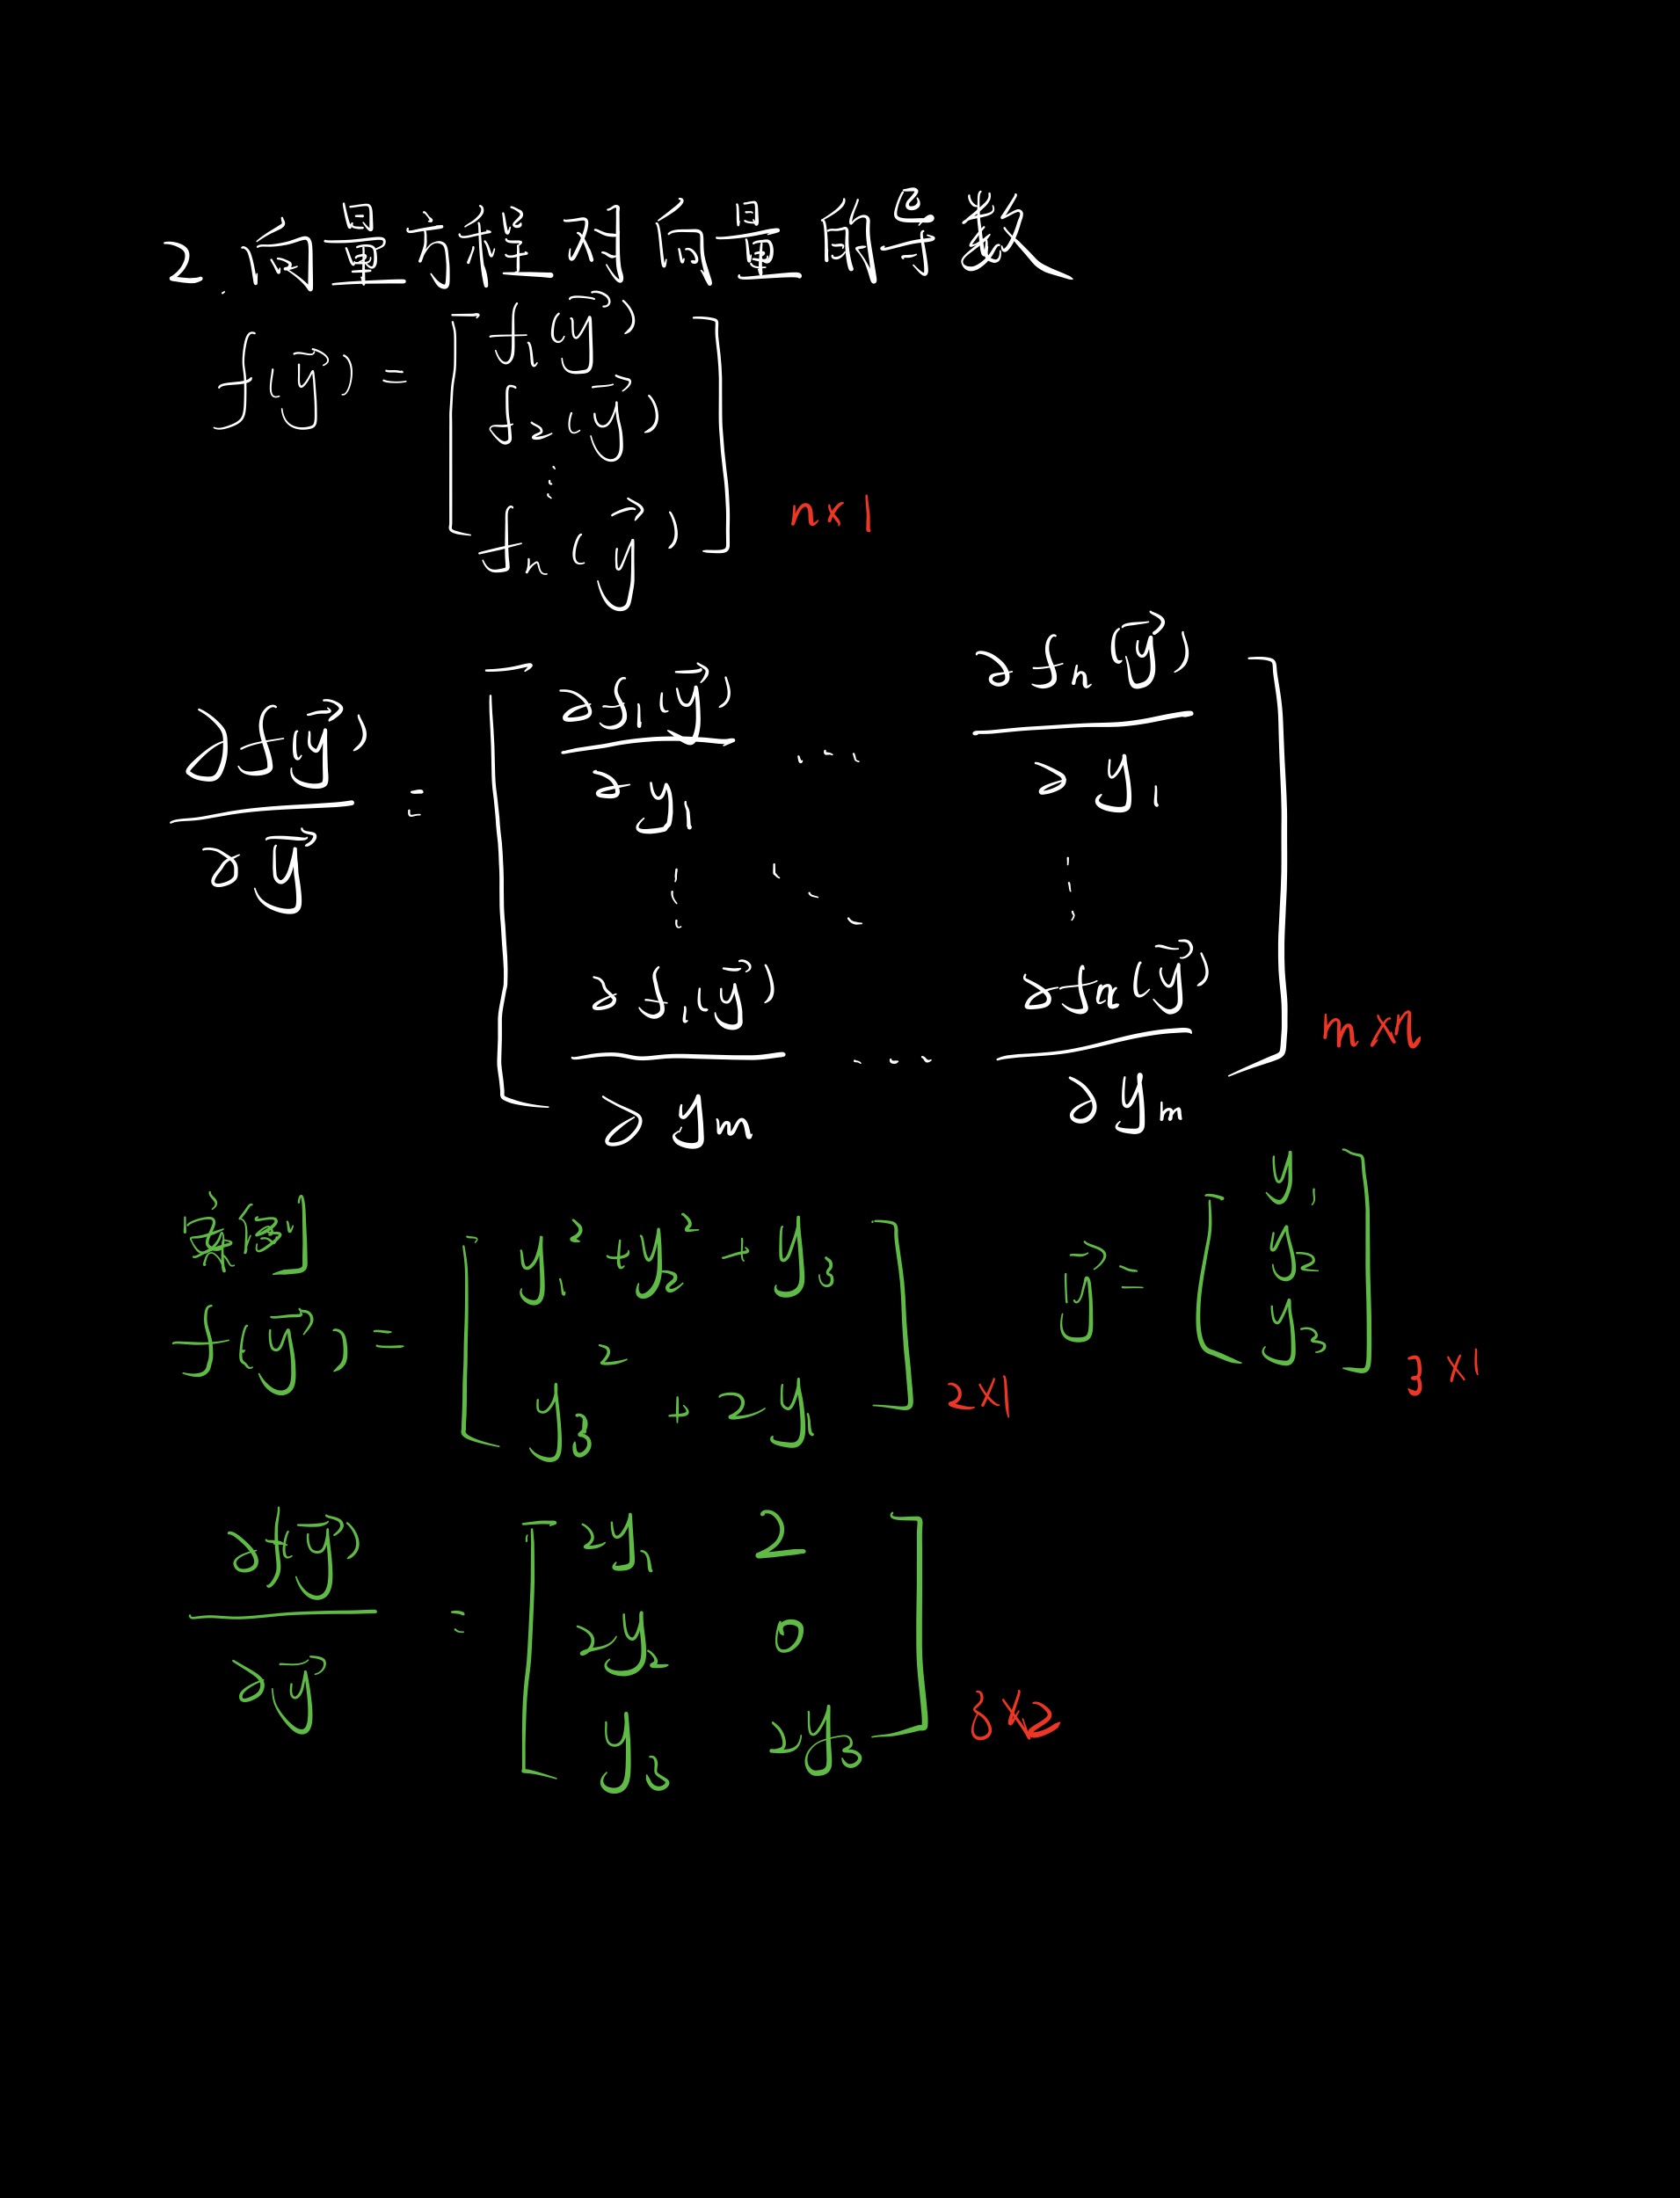 2. 向量方程对向量的导数
f(y⃗) = [ f₁(y⃗)
f₂(y⃗)
⋮
fₙ(y⃗) ] n×1
∂f(y⃗)/∂y⃗ = [ ∂f₁(y⃗)/∂y₁ ⋯ ∂fₙ(y⃗)/∂y₁
⋮ ⋱ ⋮
∂f₁(y⃗)/∂yₘ ⋯ ∂fₙ(y⃗)/∂yₘ ] m×n
案例
f(y⃗) = [ y₁² + y₂² + y₃
y₃² + 2y₁ ] 2×1
y⃗ = [ y₁
y₂
y₃ ] 3×1
∂f(y⃗)/∂y⃗ = [ 2y₁ 2
2y₂ 0
y₃ 2y₃ ] 3×2